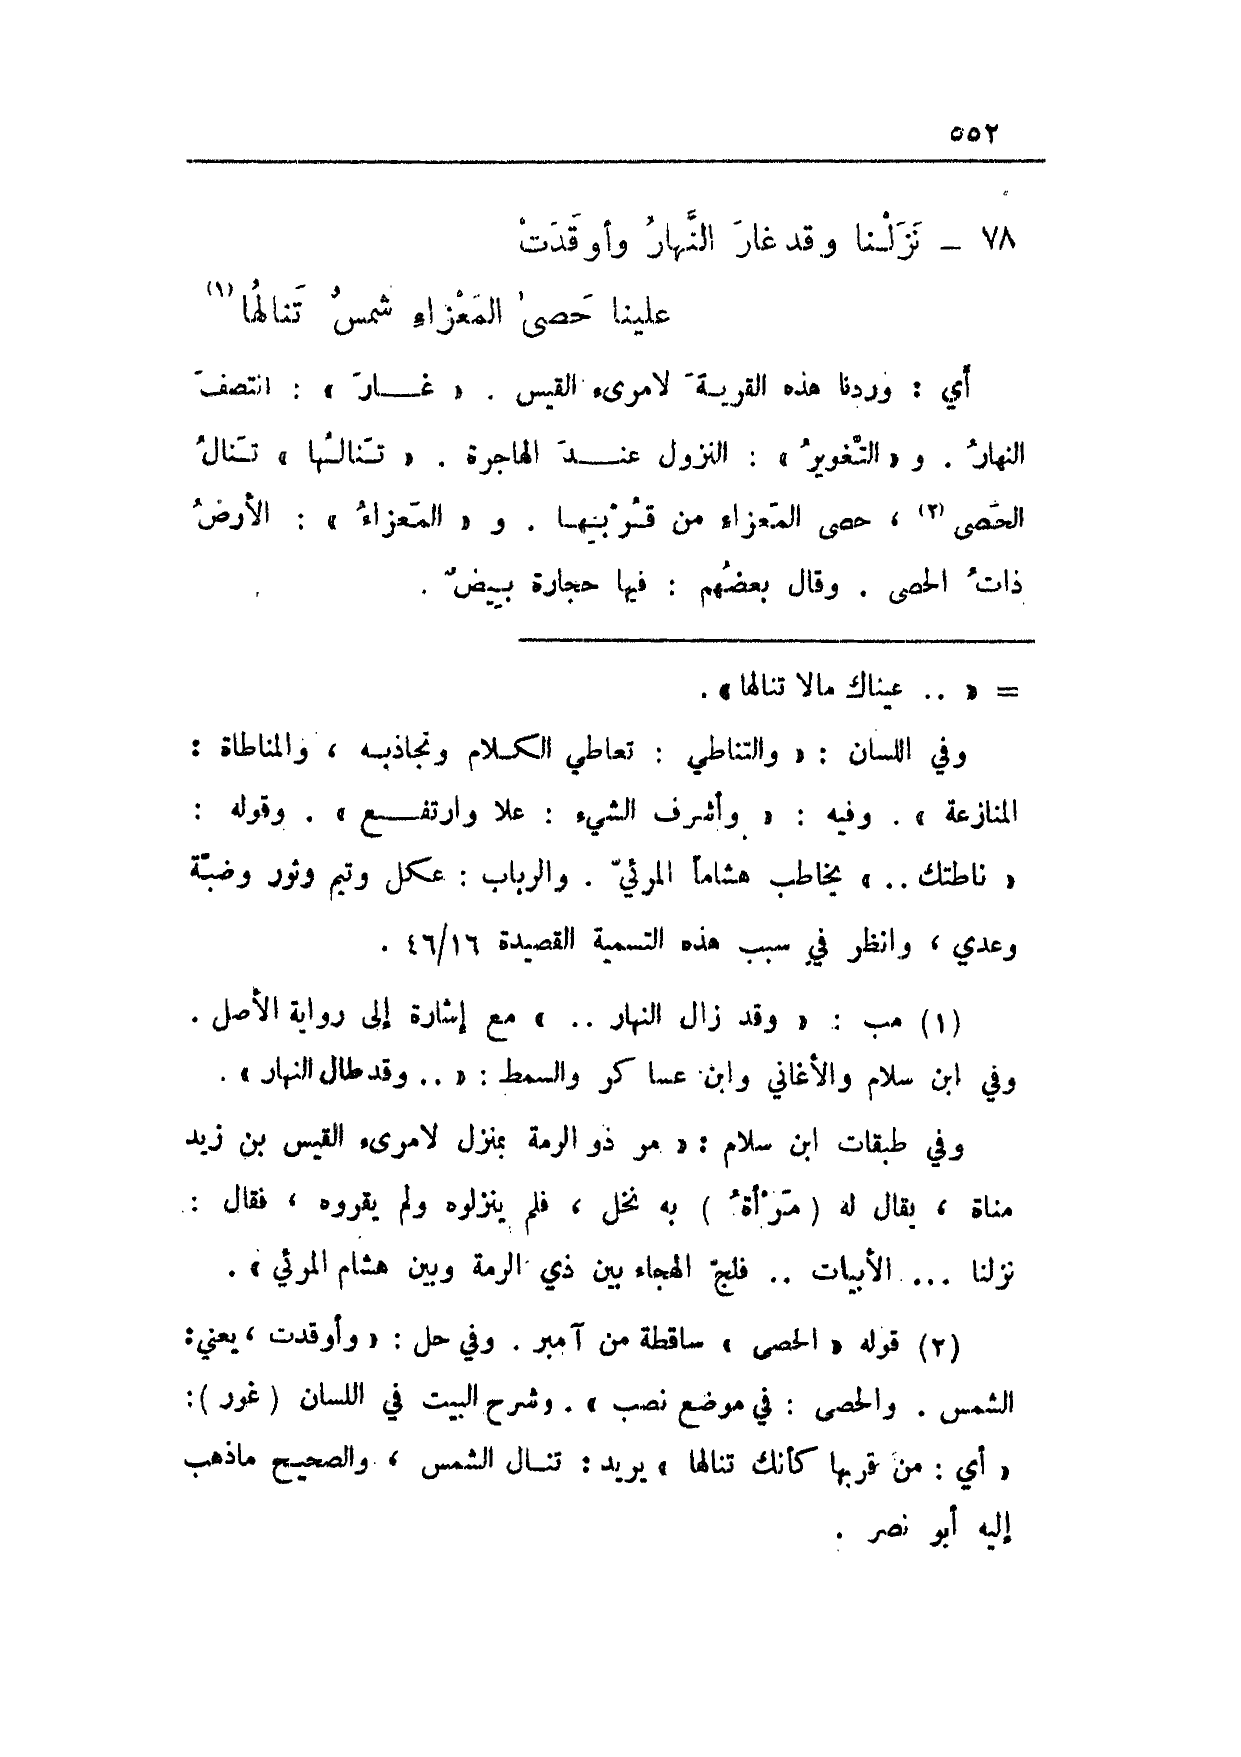 ٥٥٢
٧٨ – نَزَلْنا وقد غارَ النَّهارُ وأوقَدَتْ
علينا حَصىٰ المَعْزاءِ شمسٌ تَنالُها (١)
أي : وردنا هذه القريةَ لامرىء القيس . « غارَ » : انتصفَ
النهارُ . و « التَّغويرُ » : النزول عندَ الهاجرة . « تَنالُها » تَنالُ
الحَصى (٢) ، حصى المَعزاءِ من قُرْبِها . و « المَعزاءُ » : الأرضُ
ذاتُ الحصى . وقال بعضُهم : فيها حجارة بيضٌ .
= « .. عيناك مالا تنالها » .
وفي اللسان : « والتناطي : تعاطي الكلام وتجاذبه ، والمناطاة :
المنازعة » . وفيه : « وأشرف الشيء : علا وارتفع » . وقوله :
« ناطتك .. » يخاطب هشاماً المرئيّ . والرباب : عكل وتيم وثور وضبّة
وعدي ، وانظر في سبب هذه التسمية القصيدة ٤٦/١٦ .
(١) مب : « وقد زال النهار .. » مع إشارة إلى رواية الأصل .
وفي ابن سلام والأغاني وابن عساكر والسمط : « .. وقد طال النهار » .
وفي طبقات ابن سلام : « مر ذو الرمة بمنزل لامرىء القيس بن زيد
مناة ، يقال له ( مَرْأةُ ) به نخل ، فلم ينزلوه ولم يقروه ، فقال :
نزلنا ... الأبيات .. فلجّ الهجاء بين ذي الرمة وبين هشام المرئي » .
(٢) قوله « الحصى » ساقطة من آمبر . وفي حل : « وأوقدت ، يعني :
الشمس . والحصى : في موضع نصب » . وشرح البيت في اللسان ( غور ) :
« أي : من قربها كأنك تنالها » يريد : تنال الشمس ، والصحيح ماذهب
إليه أبو نصر .